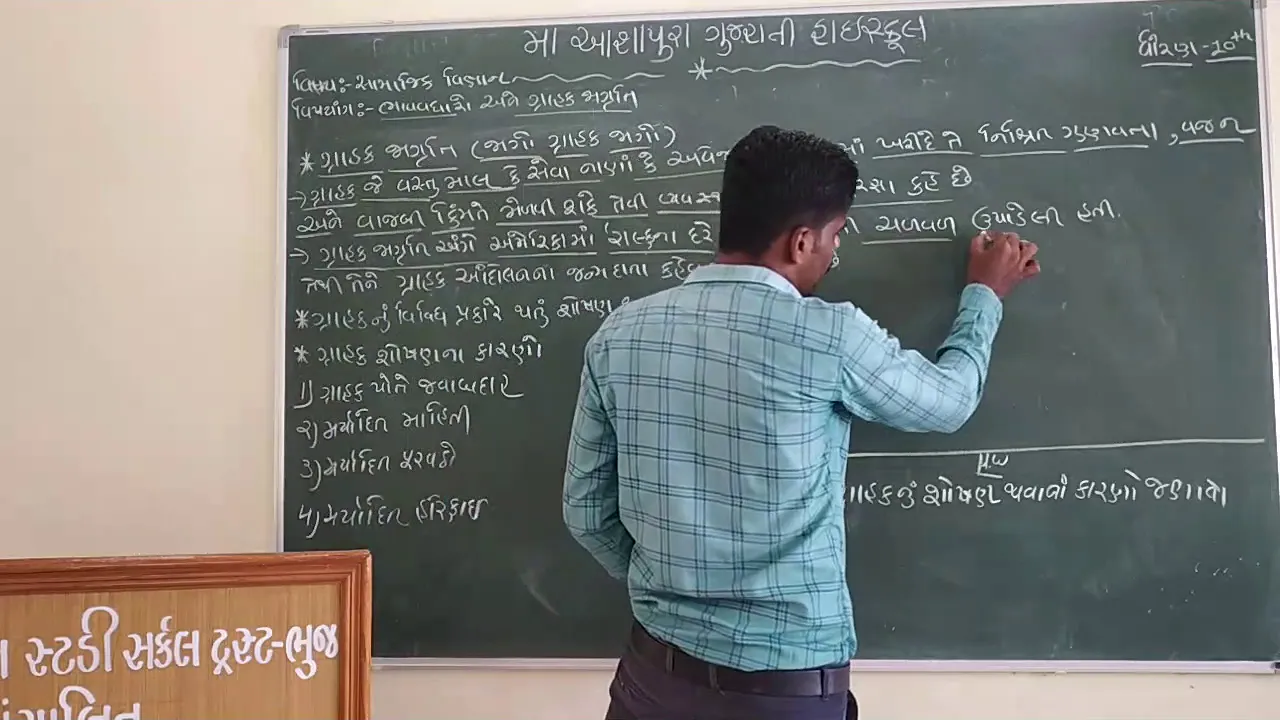 મા આશાપુરા ગુજરાતી હાઇસ્કૂલ
ધોરણ-10th
વિષય:- સામાજિક વિજ્ઞાન
વિષયાંગ:- ભાવવધારો અને ગ્રાહક જાગૃતિ
* ગ્રાહક જાગૃતિ (જાગો ગ્રાહક જાગો)
→ ગ્રાહક જે વસ્તુ માલ કે સેવા નાણાં કે ખરીદે તે નિશ્ચિત ગુણવત્તા, વજન
અને વાજબી કિંમતે મેળવી શકે તેવી કહે છે
→ ગ્રાહક જાગૃતિ અંગે અમેરિકામાં ચળવળ ઉપાડેલી હતી.
તેથી તેને ગ્રાહક આંદોલનના જન્મદાતા
* ગ્રાહકનું વિવિધ પ્રકારે થતું શોષણ
* ગ્રાહક શોષણના કારણો
1) ગ્રાહક પોતે જવાબદાર
૨) મર્યાદિત માહિતી
૩) મર્યાદિત પુરવઠો
૪) મર્યાદિત હરિફાઇ
H.W
ગ્રાહકનું શોષણ થવાનાં કારણો જણાવો
સ્ટડી સર્કલ ટ્રસ્ટ-ભુજ